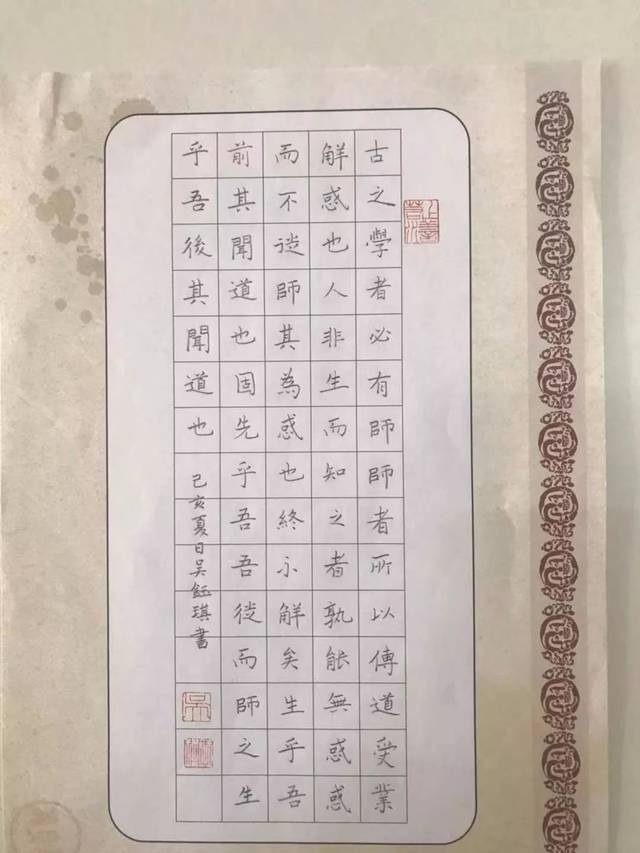 上善若水
古之學者必有師師者所以傳道受業
解惑也人非生而知之者孰能無惑惑
而不從師其為惑也終不解矣生乎吾
前其聞道也固先乎吾吾從而師之生
乎吾後其聞道也
己亥夏日吴鈺琪書
吴